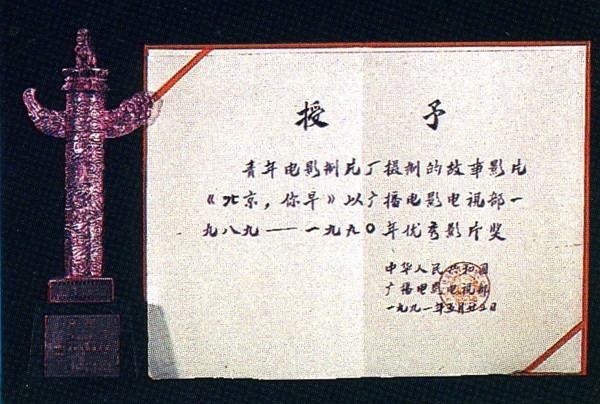 授予
青年电影制片厂摄制的故事影片
《北京，你早》以广播电影电视部一
九八九——一九九〇年优秀影片奖
中华人民共和国
广播电影电视部
一九九一年五月廿三日